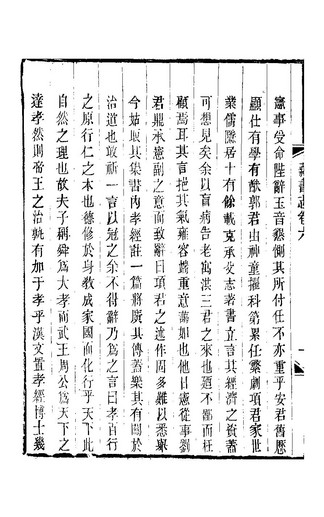 憲事受命陛辭玉音懇惻其所付任不亦重乎安君舊歷
顯仕有學有猷郭君由神童擢科第累任繁劇項君家世
業儒隱居十有餘載克承父志著書立言其經濟之資蓄
可想見矣余以盲病告老寓淇三君之來也廼不鄙而枉
顧焉耳其言挹其氣雍容醞重意藹如也他日憲從事劉
君鼎承憲副之意而致辭曰項君之述作固多難以悉舉
今姑取其集書內孝經註一篇將廣其傳蓋樂其有關於
治道也敢祈一言以冠之余不得辭乃為之言曰孝百行
之原行仁之本也德修於身教成家國而化行乎天下此
自然之理也故夫子稱舜為大孝而武王周公為天下之
達孝然則帝王之治孰有加于孝乎漢文置孝經博士幾
志卷六
一